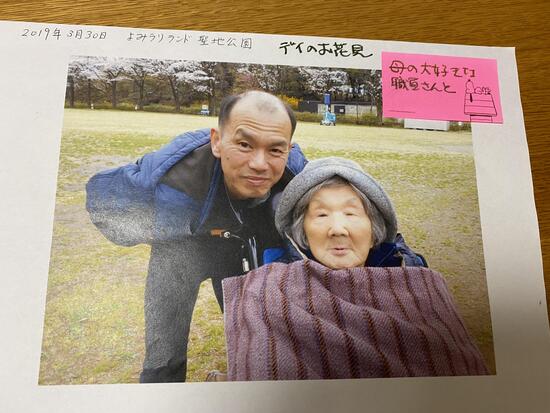 2019年3月30日 よみうりランド 聖地公園 デイのお花見
母の大好きな
職員さんと